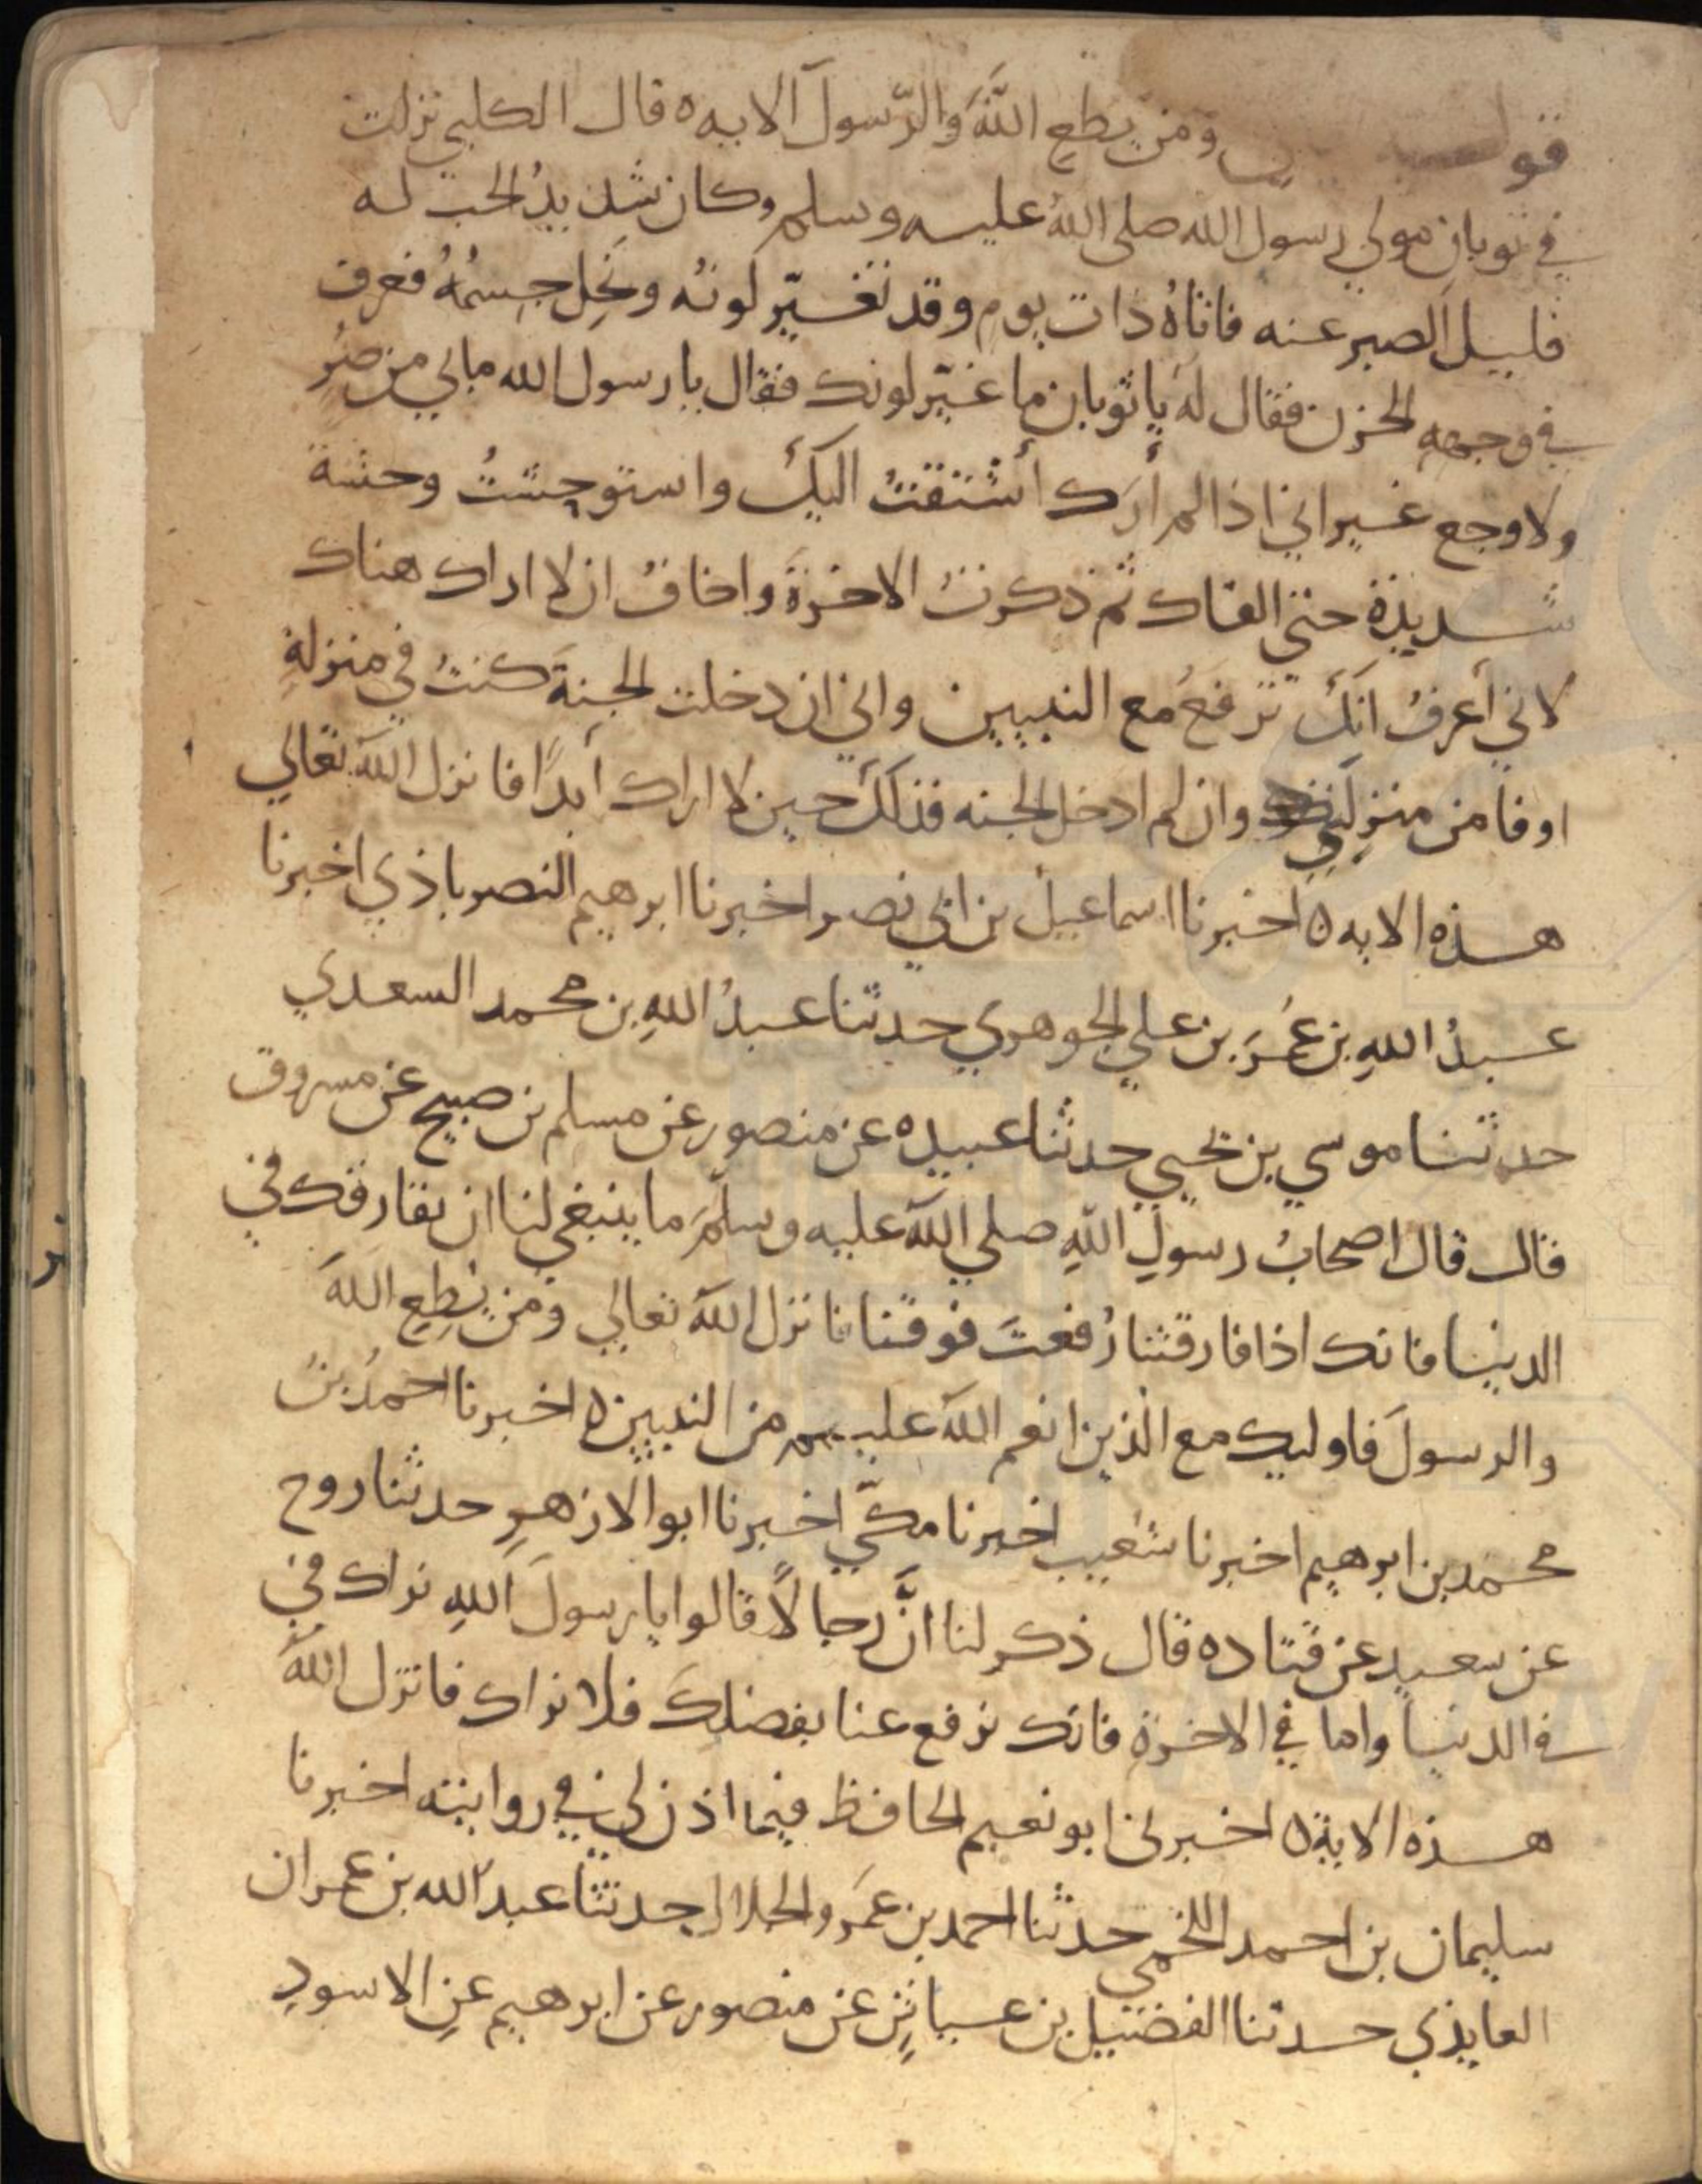 قوله ومن يطع اللَّهَ والرّسول الايه ه قال الكلبي نزلت
في ثوبان مولي رسول الله صلى الله عليه وسلم وكان شديدُ الحب له
قليل الصبر عنه فاتاهُ ذات يوم وقد تغيّر لونُه ونَحِل جسمُهُ فعرف
في وجهه الحزن فقال له يا ثوبان ما غيّر لونك فقال يا رسول الله مالي من ضُر
ولا وجع غير اني اذا لم أرَك أشتقتُ اليكَ واستوحشتُ وحشة
شديدة حتي القاك ثم ذكرتُ الاخرةَ واخافُ ان لا اراك هناك
لاني أعرفُ انكَ ترفعُ مع النبيين واني ان دخلت الجنةَ كنتُ في منزلةٍ
اوفا من منزلتي وان لم ادخل الجنه فذلكَ حين لا اراك أبدًا فانزل اللّه تعالي
هذه الايه ه اخبرنا اسماعيل بن ابي نصر اخبرنا ابرهيم النصراباذي اخبرنا
عبدُ اللهِ بن عُمَرَ بن علي الجوهري حدثنا عبدُ اللهِ بن محمد السعدي
حدثنا موسي بن يحيي حدثنا عبيده عن منصور عن مسلم بن صبيح عن مسروق
قال قال اصحابُ رسولِ اللهِ صلي اللّه عليه وسلمَ ما ينبغي لنا ان نفارقك في
الدنيا فانك اذا فارقتنا رُفعتَ فوقنا فانزل اللّه تعالي ومن يُطِعِ اللهَ
والرسولَ فاوليك مع الذين انعم اللّه عليهم من النبيين ه اخبرنا احمدُ بنُ
محمد بن ابرهيم اخبرنا شعيب اخبرنا مكّي اخبرنا ابو الازهرِ حدثنا روح
عن سعيد عن قتاده قال ذكر لنا انَّ رجالًا قالوا يا رسولَ اللهِ نراك في
في الدنيا واما في الاخرة فانك ترفع عنا بفضلِكَ فلا نراك فانزل اللّهُ
هذه الاية ه اخبرني ابو نعيم الحافظ فيما اذن لي في روايته اخبرنا
سليمان بن احمد اللخمي حدثنا احمد بن عمَرو الخلال حدثنا عبد الله بن عمران
العابذي حدثنا الفضيل بن عياضٍ عن منصور عن ابرهيم عنِ الاسودِ